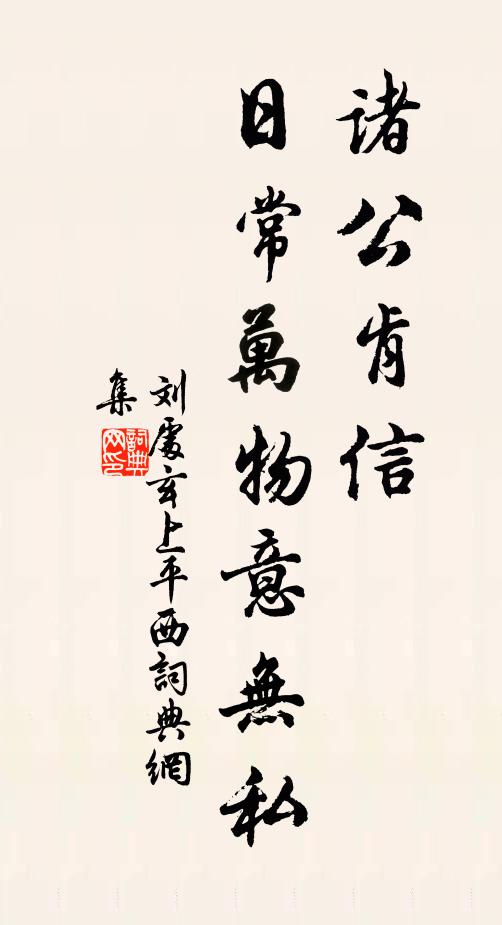 諸公肯信
日常萬物意無私
刘處玄上平西詞典網
集
詞典
网印